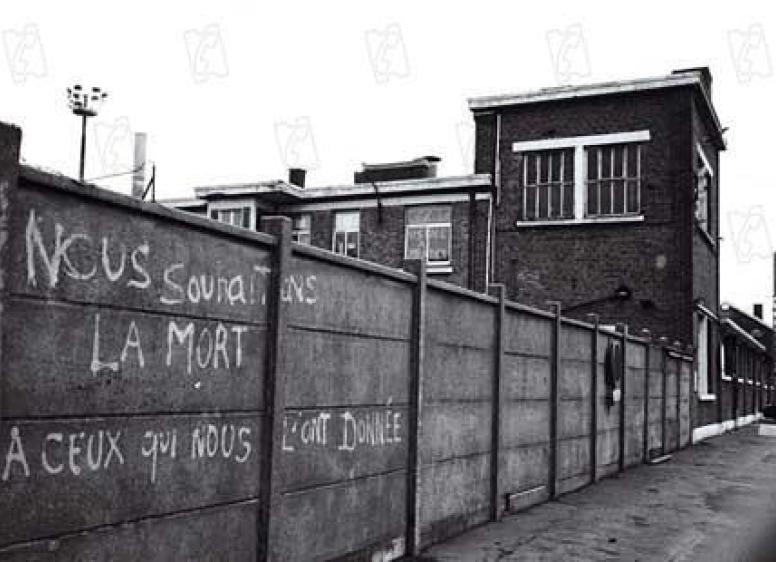 NOUS Souhaitons
LA MORT
A CEUX qui NOUS L'ONT DONNÉE